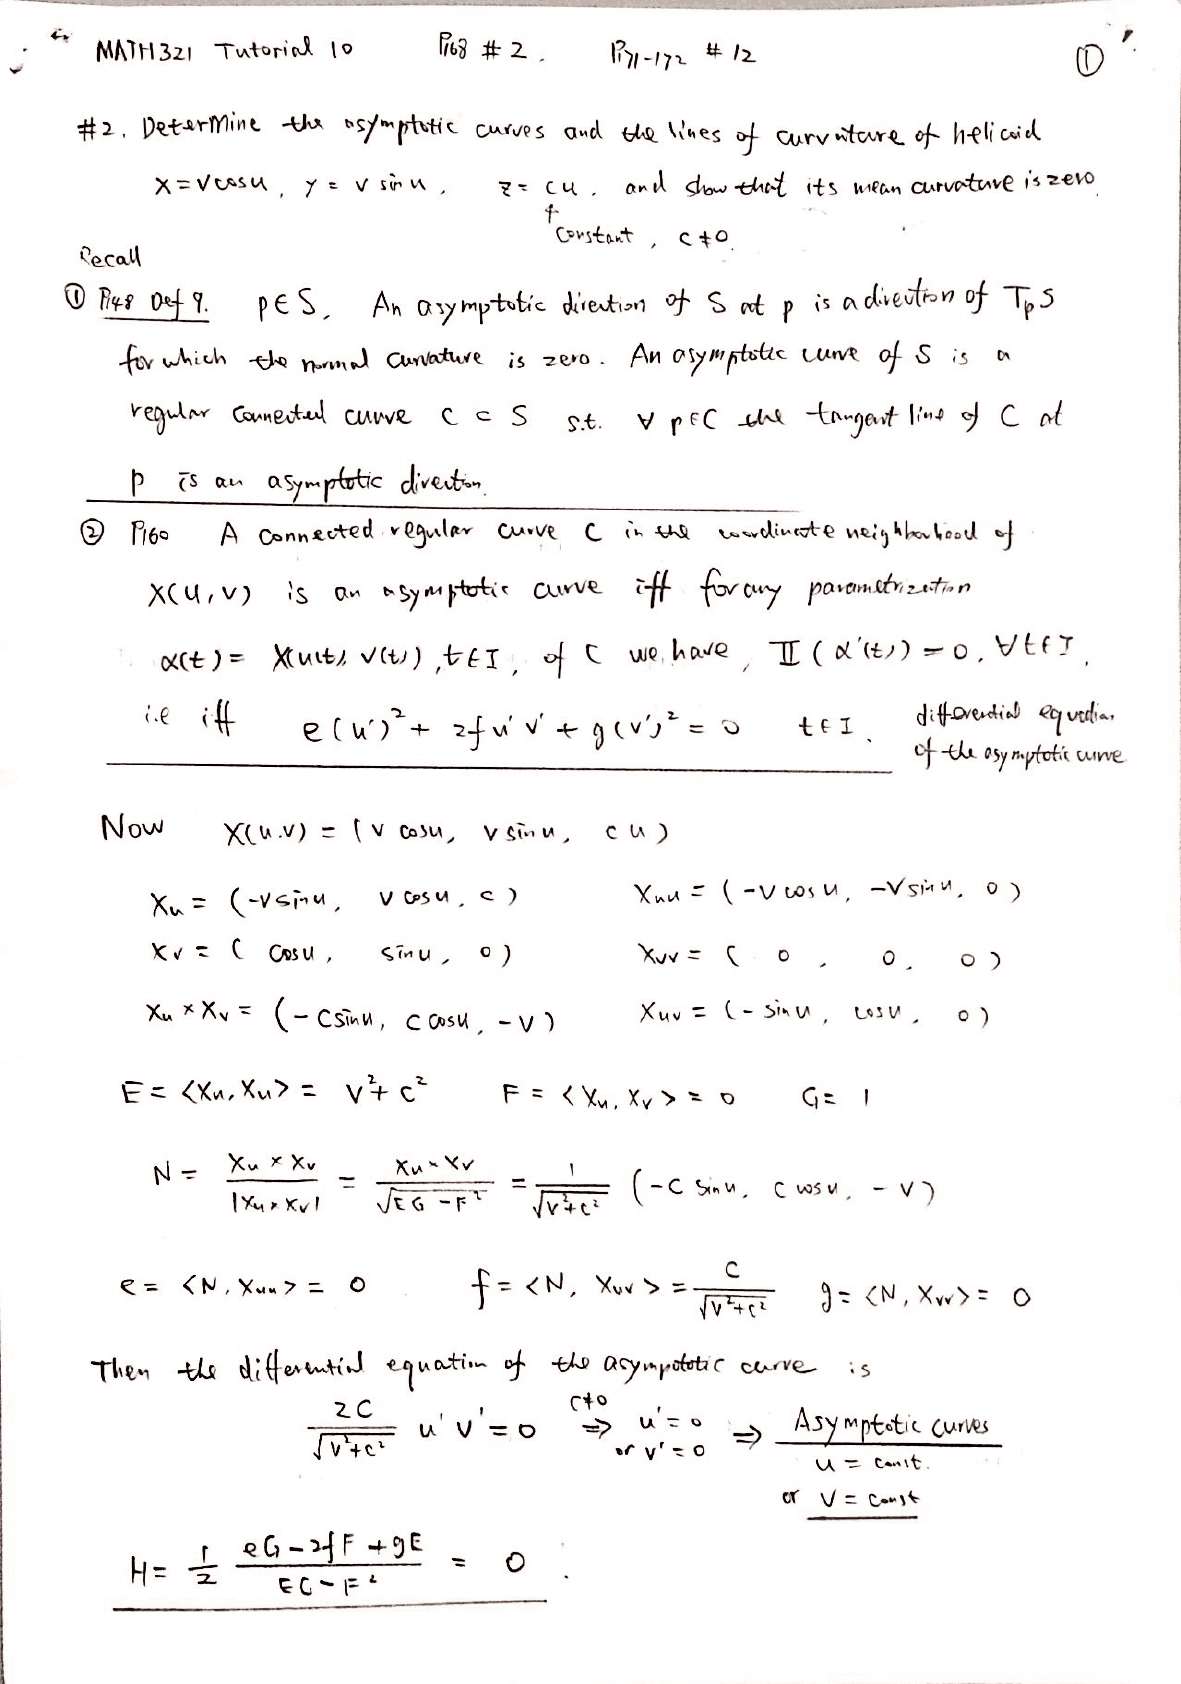 MATH321 Tutorial 10 P168 #2. P171-172 #12 ①
#2. Determine the asymptotic curves and the lines of curvature of helicoid
x=vcosu, y=v sinu, z=cu. and show that its mean curvature is zero
↑
constant, c≠0.
Recall
① P148 Def 9. p∈S, An asymptotic direction of S at p is a direction of TpS
for which the normal curvature is zero. An asymptotic curve of S is a
regular connected curve C⊂S s.t. ∀p∈C the tangent line of C at
p is an asymptotic direction.
② P160 A connected regular curve C in the coordinate neighborhood of
X(u,v) is an asymptotic curve iff for any parametrization
α(t)= X(u(t), v(t)), t∈I, of C we have, II(α'(t))=0, ∀t∈I,
i.e iff e(u')²+2fu'v'+g(v')²=0 t∈I. differential equation
of the asymptotic curve
Now X(u.v) = (v cosu, v sinu, cu)
Xu = (-vsinu, v cosu, c) Xuu = (-v cosu, -v sinu, 0)
Xv = (cosu, sinu, 0) Xvv = (0, 0, 0)
Xu×Xv = (-csinu, c cosu, -v) Xuv = (-sinu, cosu, 0)
E = <Xu, Xu> = v²+c² F = <Xu, Xv> = 0 G = 1
N = Xu×Xv / |Xu×Xv| = Xu×Xv / √EG-F² = 1/√v²+c² (-c sinu, c cosu, -v)
e = <N, Xuu> = 0 f = <N, Xuv> = c/√v²+c² g = <N, Xvv> = 0
Then the differential equation of the asympototic curve is
2C/√v²+c² u'v'=0 c≠0 ⇒ u'=0 or v'=0 ⇒ Asymptotic curves
u = const.
or v = const
H = 1/2 eG-2fF+gE / EG-F² = 0.